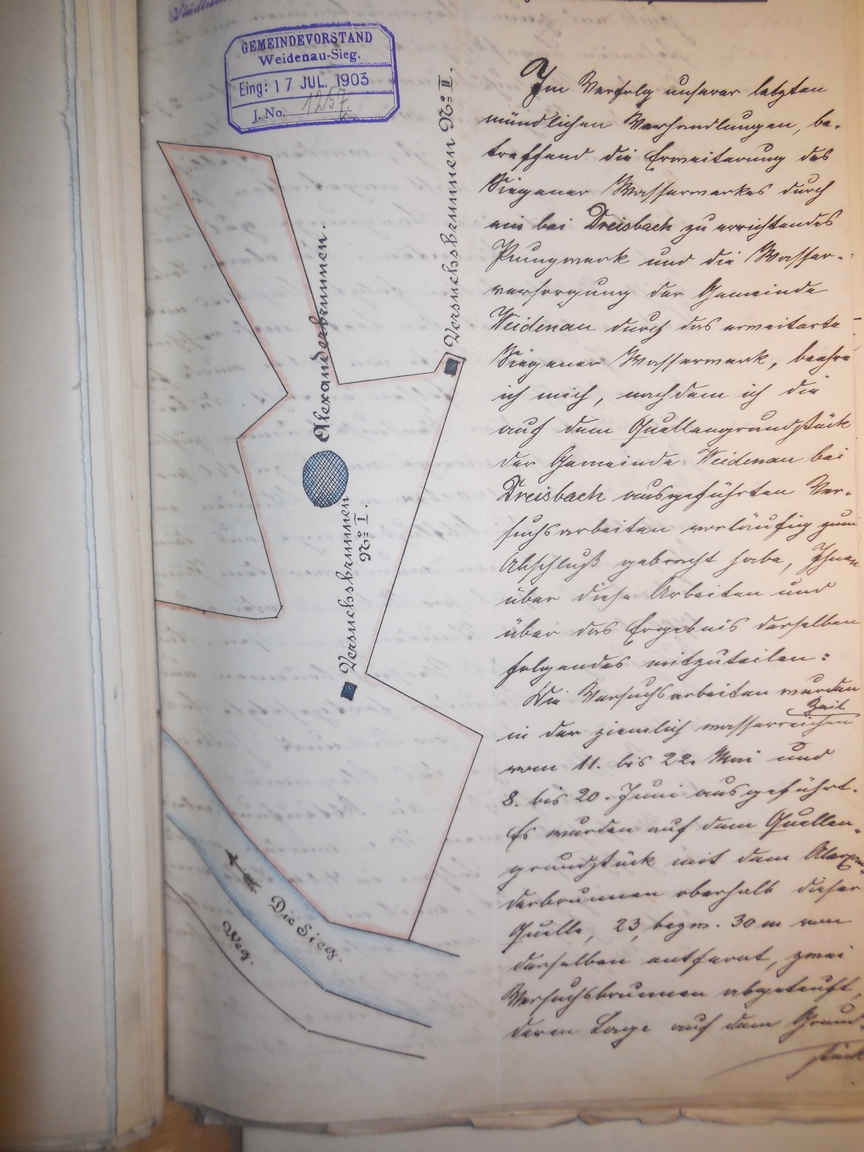 GEMEINDEVORSTAND
Weidenau-Sieg.
Eing: 17 JUL. 1903
J. No.
Alexanderbrunnen.
Versuchsbrunnen No. II.
Versuchsbrunnen
No. I.
Die Sieg.
Weg.
Im Verfolg unserer letzten
mündlichen Verhandlungen, be-
treffend die Erweiterung des
Siegener Wasserwerkes durch
ein bei Dreisbach zu errichtendes
Pumpwerk und die Wasser-
versorgung der Gemeinde
Weidenau durch das erweiterte
Siegener Wasserwerk, beehre
ich mich, nachdem ich die
auf dem Quellengrundstück
der Gemeinde Weidenau bei
Dreisbach ausgeführten Ver-
suchsarbeiten vorläufig zum
Abschluß gebracht habe, Ihnen
über diese Arbeiten und
über das Ergebnis derselben
folgendes mitzuteilen:
Die Versuchsarbeiten wurden
in der ziemlich wasserreichen Zeit
vom 11. bis 22. Mai und
8. bis 20. Juni ausgeführt.
Es wurden auf dem Quellen-
grundstück mit dem Alexan-
derbrunnen oberhalb dieser
Quelle, 23 bezw. 30 m von
derselben entfernt, zwei
Versuchsbrunnen abgeteuft,
deren Lage auf dem Grund-
stück